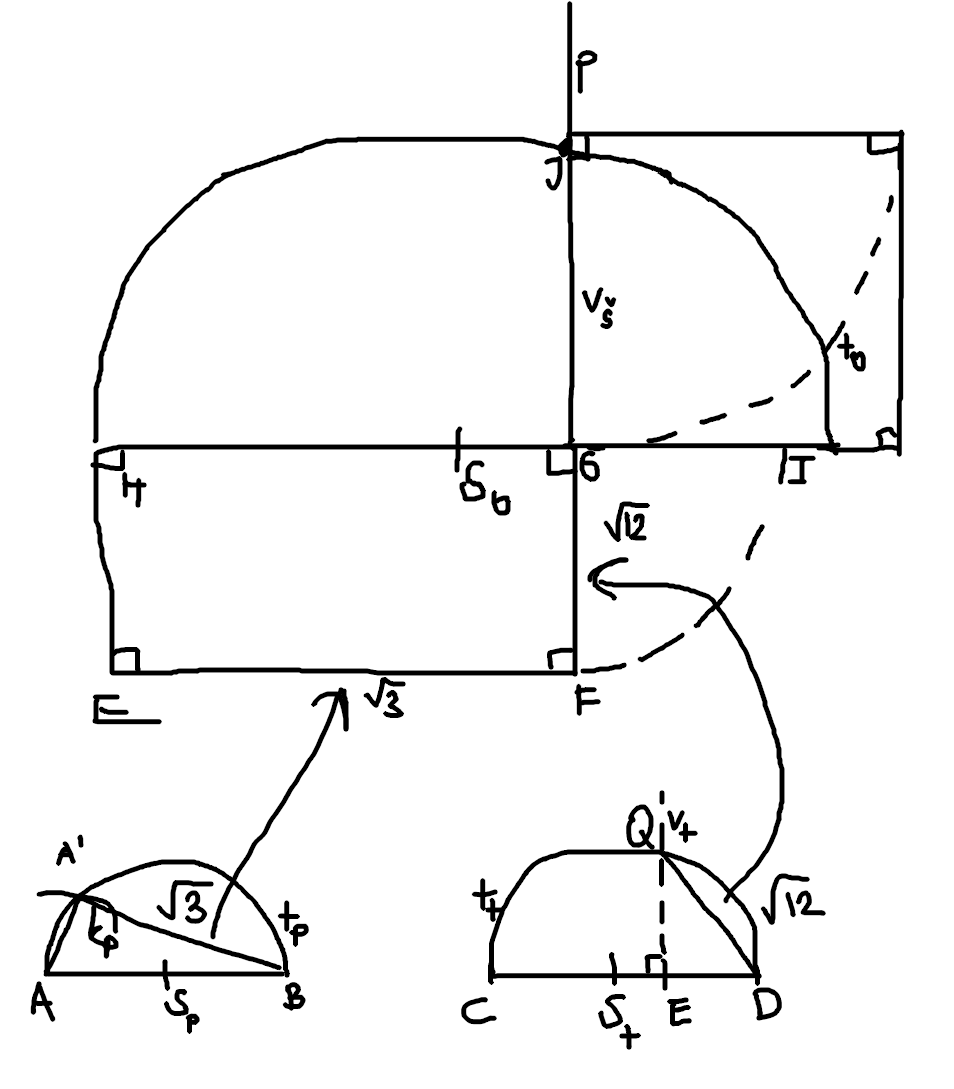 P
J
Vš
t₀
H
S₆
G
I
√12
E
√3
F
A'
√3
tₚ
kₚ
A
Sₚ
B
Q
V₊
t₊
√12
C
S₊
E
D